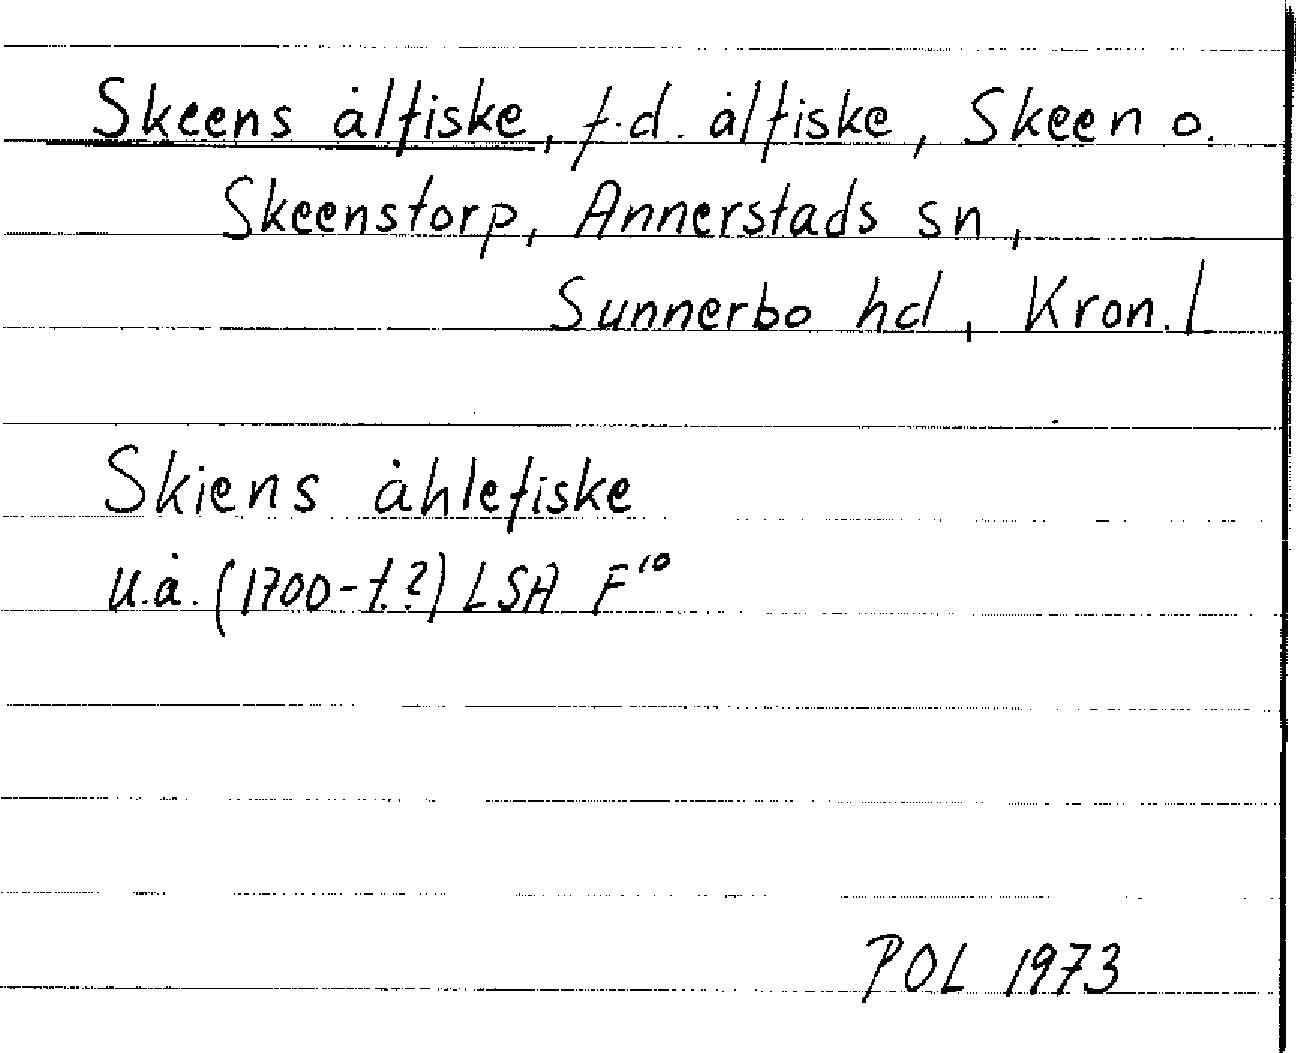 Skeens ålfiske, f.d. ålfiske, Skeen o.
Skeenstorp, Annerstads sn,
Sunnerbo hd, Kron. l
Skiens åhlefiske
u.å. (1700-t.?) LSA F¹⁰
POL 1973